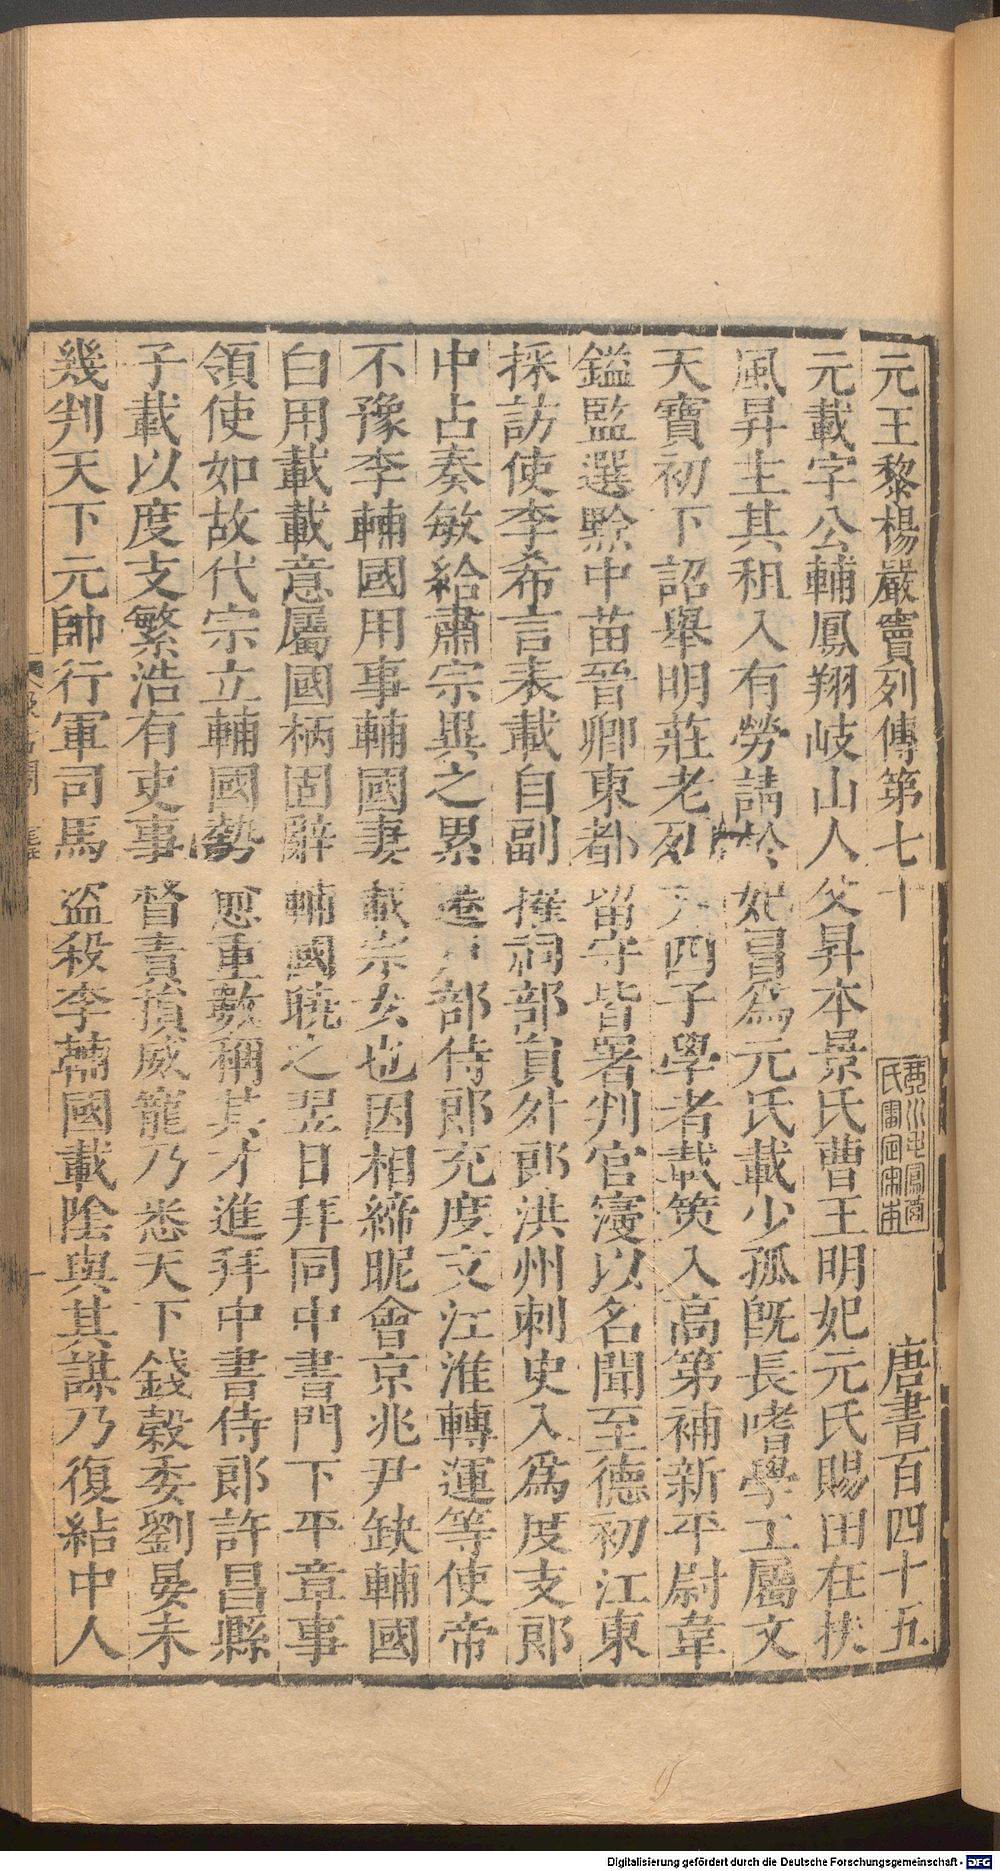 元王黎楊嚴竇列傳第七十 唐書百四十五
元載字公輔鳳翔岐山人父昇本景氏曹王明妃元氏賜田在扶
風昇主其租入有勞請於妃冒爲元氏載少孤旣長嗜學工屬文
天寶初下詔舉明莊老列四子學者載策入高第補新平尉韋
鎰監選黔中苗晉卿東都留守皆署判官寖以名聞至德初江東
採訪使李希言表載自副擢祠部員外郎洪州刺史入爲度支郎
中占奏敏給肅宗異之累遷戶部侍郎充度支江淮轉運等使帝
不豫李輔國用事輔國妻載宗女也因相締昵會京兆尹缺輔國
白用載載意屬國柄固辭輔國曉之翌日拜同中書門下平章事
領使如故代宗立輔國勢愈重數稱其才進拜中書侍郎許昌縣
子載以度支繁浩有吏事督責損威寵乃悉天下錢穀委劉晏未
幾判天下元帥行軍司馬盜殺李輔國載陰與其謀乃復結中人
Digitalisierung gefördert durch die Deutsche Forschungsgemeinschaft - DFG